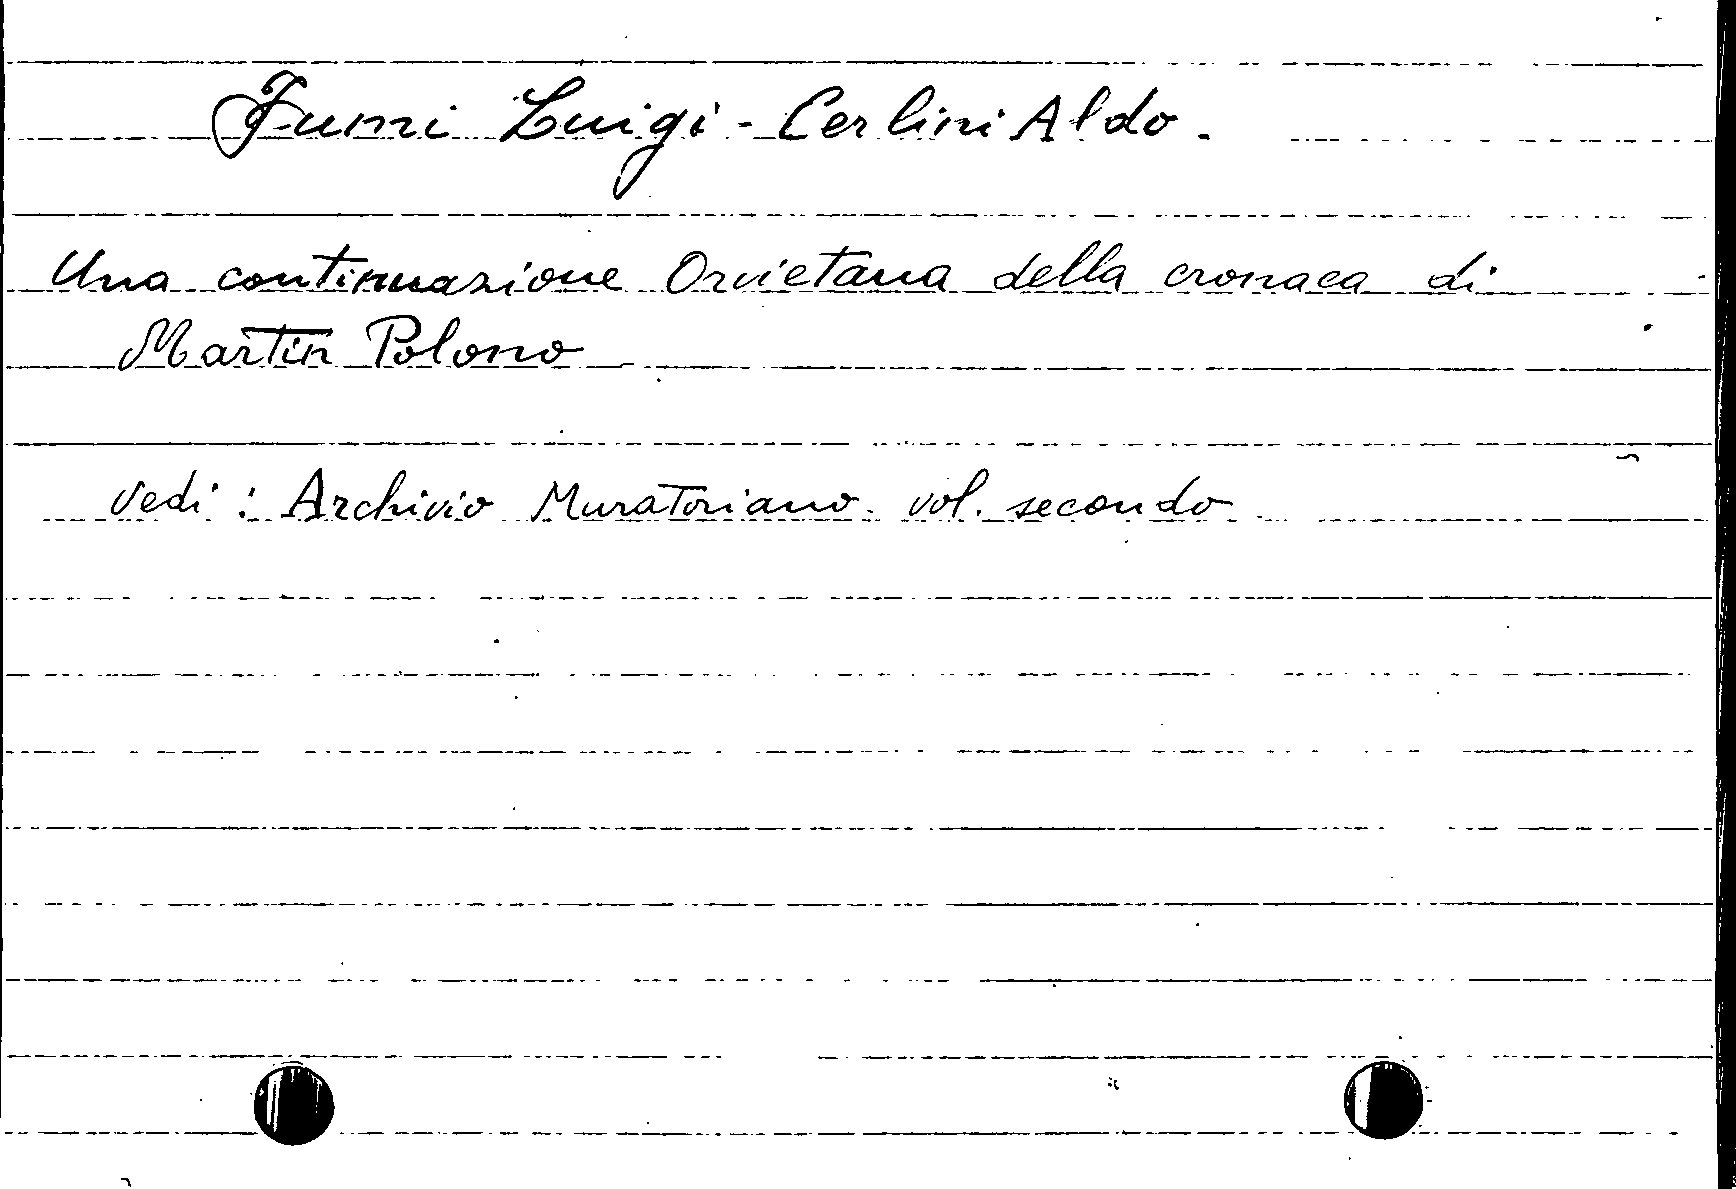 Fumi Luigi - Cerlini Aldo.
Una continuazione Orvietana della cronaca di
Martin Polono
vedi : Archivio Muratoriano. vol. secondo